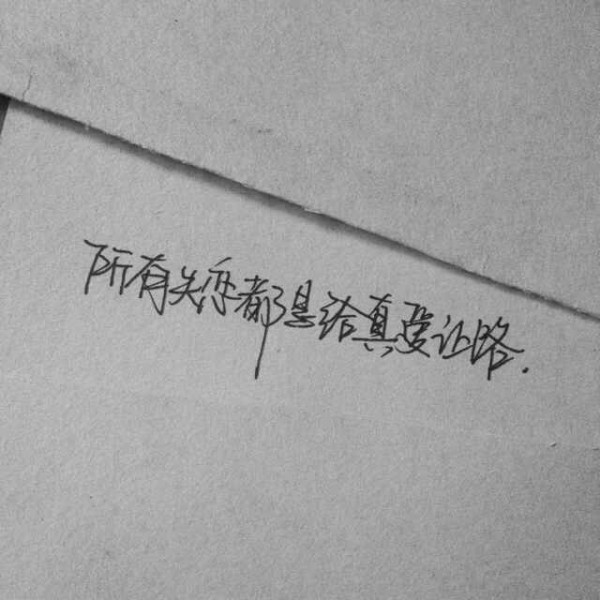 所有失恋都是给真爱让路.